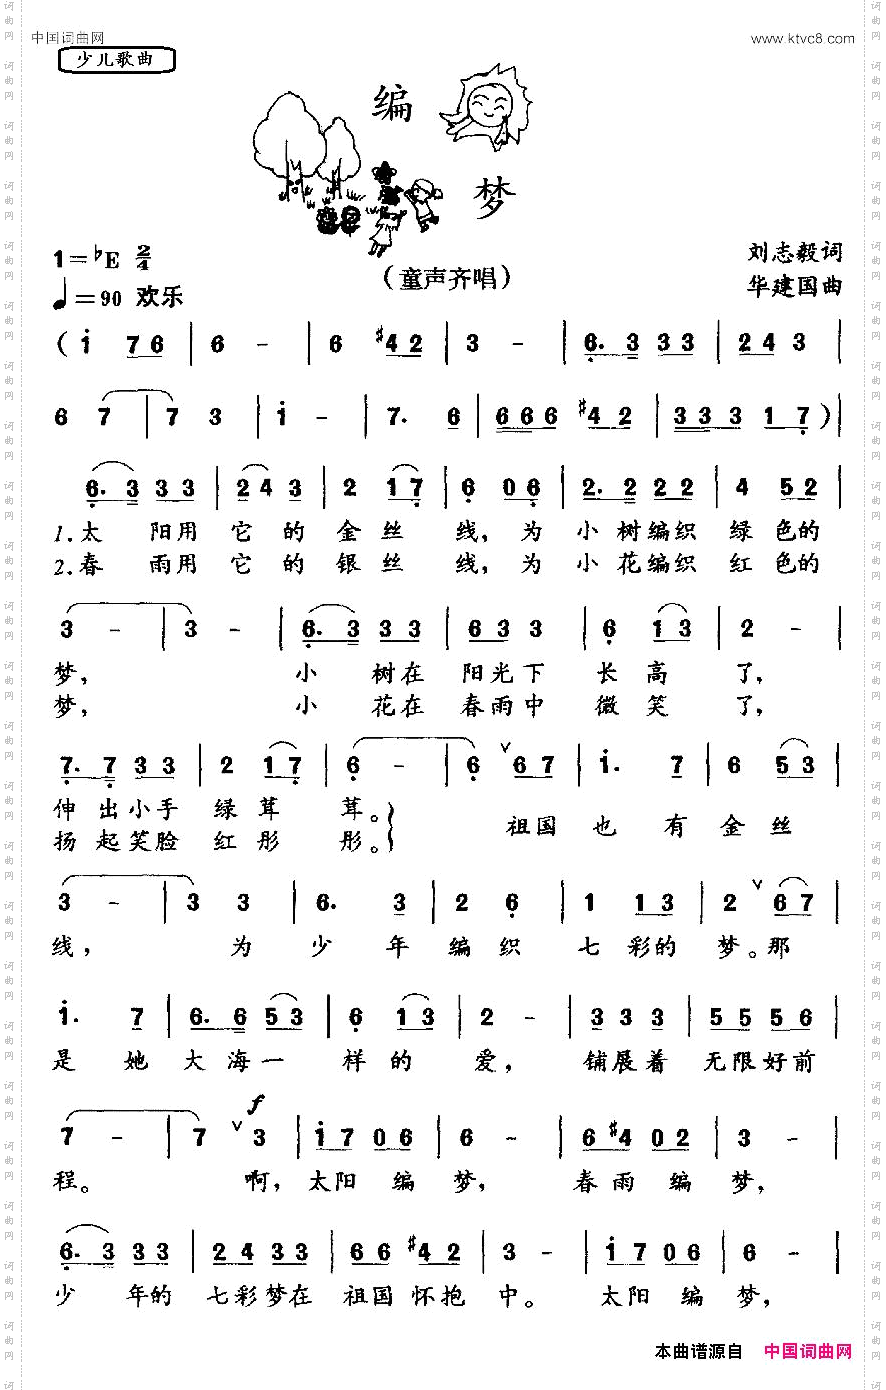 中国词曲网 www.ktvc8.com
少儿歌曲
编
梦
1=♭E 2/4
♩=90 欢乐
(童声齐唱)
刘志毅词
华建国曲
(i 76 | 6 - | 6 #42 | 3 - | 6. 3 33 | 243 |
6 7 | 7 3 | i - | 7. 6 | 666 #42 | 333 17)|
6. 3 33 | 243 | 2 17 | 6 06 | 2. 2 22 | 4 52 |
1.太 阳用 它 的 金 丝 线, 为 小 树编织 绿 色的
2.春 雨用 它 的 银 丝 线, 为 小 花编织 红 色的
3 - | 3 - | 6. 3 33 | 633 | 6 13 | 2 - |
梦, 小 树在 阳光下 长 高 了,
梦, 小 花在 春雨中 微 笑 了,
7. 7 33 | 2 17 | 6 - | 6 ∨67 | i. 7 | 6 53 |
伸 出小手 绿 茸 茸。 祖国 也 有 金 丝
扬 起笑脸 红 彤 彤。
3 - | 3 3 | 6. 3 | 2 6 | 1 13 | 2 ∨67 |
线, 为 少 年 编 织 七 彩的 梦。那
i. 7 | 6. 6 53 | 6 13 | 2 - | 333 | 5556 |
是 她 大 海一 样 的 爱, 铺展着 无限好前
7 - | 7 ∨3 | i706 | 6 - | 6#402 | 3 - |
f
程。 啊, 太阳 编 梦, 春雨 编 梦,
6. 3 33 | 2433 | 66 #42 | 3 - | i706 | 6 - |
少 年的 七彩梦在 祖国 怀抱 中。 太阳 编 梦,
本曲谱源自 中国词曲网